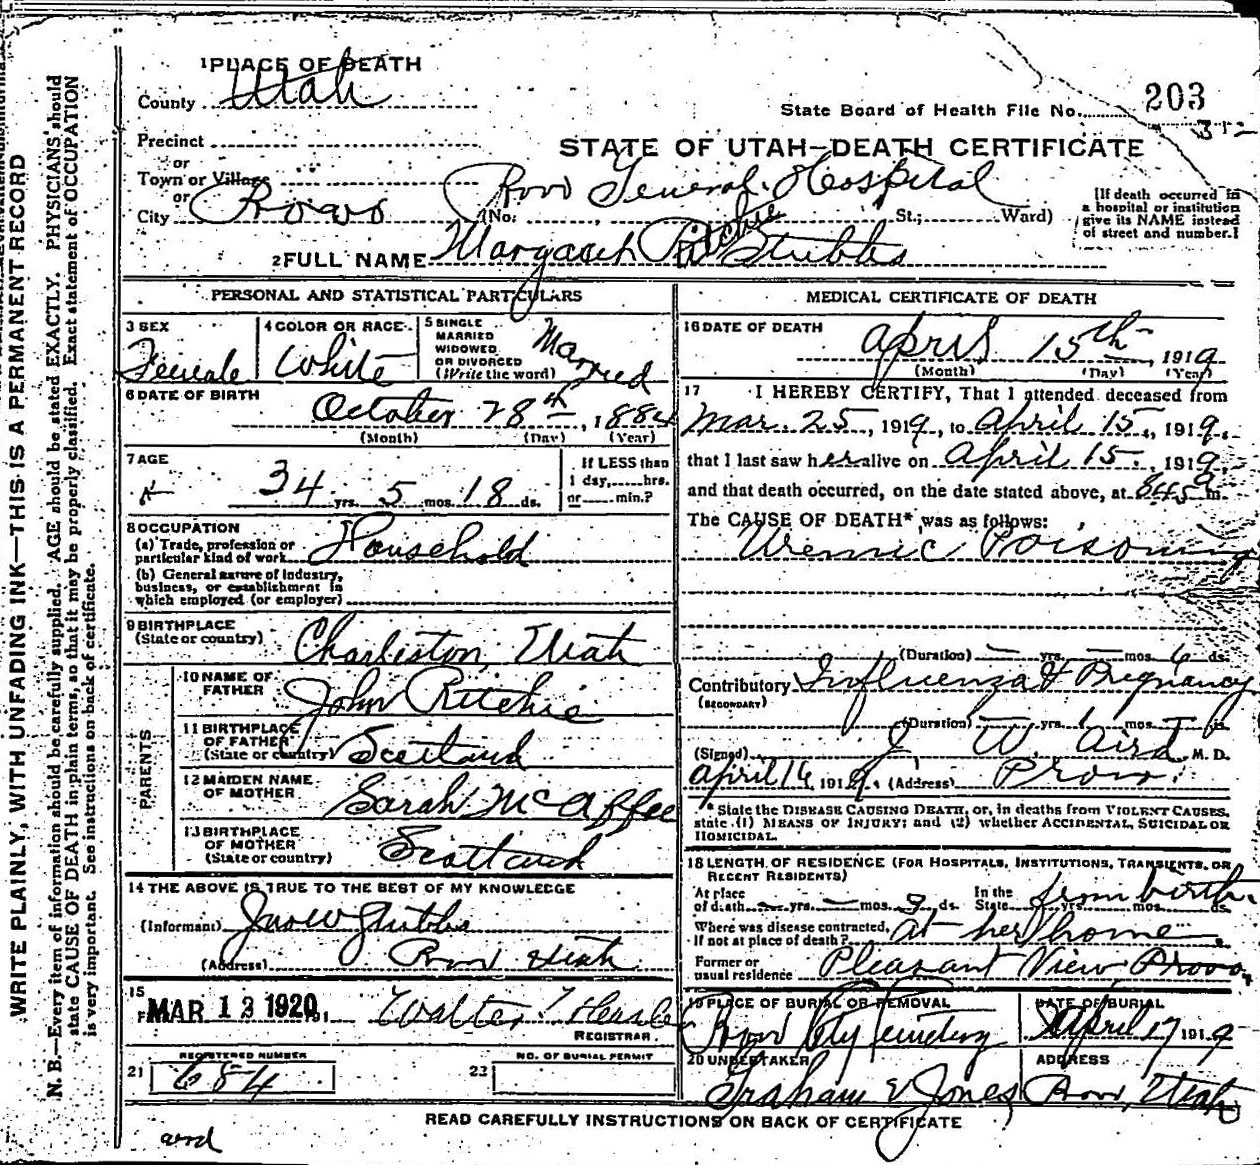 1 PLACE OF DEATH
County Utah
State Board of Health File No. 203
Precinct
STATE OF UTAH—DEATH CERTIFICATE
or
Town or Village
or
City Provo (No. Prov General Hospital St.; Ward)
[If death occurred in
a hospital or institution
give its NAME instead
of street and number.]
2 FULL NAME Margaret Ritchie Stubbs
PERSONAL AND STATISTICAL PARTICULARS
3 SEX
Female
4 COLOR OR RACE
White
5 SINGLE
MARRIED
WIDOWED
OR DIVORCED
(Write the word)
Married
6 DATE OF BIRTH
October 28th, 1884
(Month) (Day) (Year)
7 AGE
34 yrs. 5 mos. 18 ds.
If LESS than
1 day, hrs.
or min.?
8 OCCUPATION
(a) Trade, profession or
particular kind of work Household
(b) General nature of industry,
business, or establishment in
which employed (or employer)
9 BIRTHPLACE
(State or country) Charleston, Utah
PARENTS
10 NAME OF
FATHER John Ritchie
11 BIRTHPLACE
OF FATHER
(State or country) Scotland
12 MAIDEN NAME
OF MOTHER Sarah McAffee
13 BIRTHPLACE
OF MOTHER
(State or country) Scotland
14 THE ABOVE IS TRUE TO THE BEST OF MY KNOWLEDGE
(Informant) Stubbs
(Address) Prov Utah
15
MAR 13 1920 191 Walter T
REGISTRAR
REGISTERED NUMBER
21 684
NO. OF BURIAL PERMIT
22
MEDICAL CERTIFICATE OF DEATH
16 DATE OF DEATH
April 15th, 1919
(Month) (Day) (Year)
17 I HEREBY CERTIFY, That I attended deceased from
Mar. 25, 1919, to April 15, 1919,
that I last saw her alive on April 15, 1919,
and that death occurred, on the date stated above, at 845 a m.
The CAUSE OF DEATH* was as follows:
Uremic Poisoning
(Duration) — yrs. — mos. 6 ds.
Contributory Influenza & Pregnancy
(SECONDARY)
(Duration) — yrs. 1 mos. ds.
(Signed) J W. Aird M. D.
April 16 1919. (Address) Provo.
* State the DISEASE CAUSING DEATH, or, in deaths from VIOLENT CAUSES,
state (1) MEANS OF INJURY; and (2) whether ACCIDENTAL, SUICIDAL OR
HOMICIDAL.
18 LENGTH OF RESIDENCE (FOR HOSPITALS, INSTITUTIONS, TRANSIENTS, OR
RECENT RESIDENTS)
At place
of death — yrs. — mos. 3 ds.
In the
State from birth yrs. mos. ds.
Where was disease contracted,
if not at place of death? at her home
Former or
usual residence Pleasant View Provo,
19 PLACE OF BURIAL OR REMOVAL
Prov City Cemetery
DATE OF BURIAL
April 17 1919
20 UNDERTAKER
Graham & Jones
ADDRESS
Prov, Utah
READ CAREFULLY INSTRUCTIONS ON BACK OF CERTIFICATE
WRITE PLAINLY, WITH UNFADING INK—THIS IS A PERMANENT RECORD
N. B.—Every item of information should be carefully supplied. AGE should be stated EXACTLY. PHYSICIANS should
state CAUSE OF DEATH in plain terms, so that it may be properly classified. Exact statement of OCCUPATION
is very important. See instructions on back of certificate.